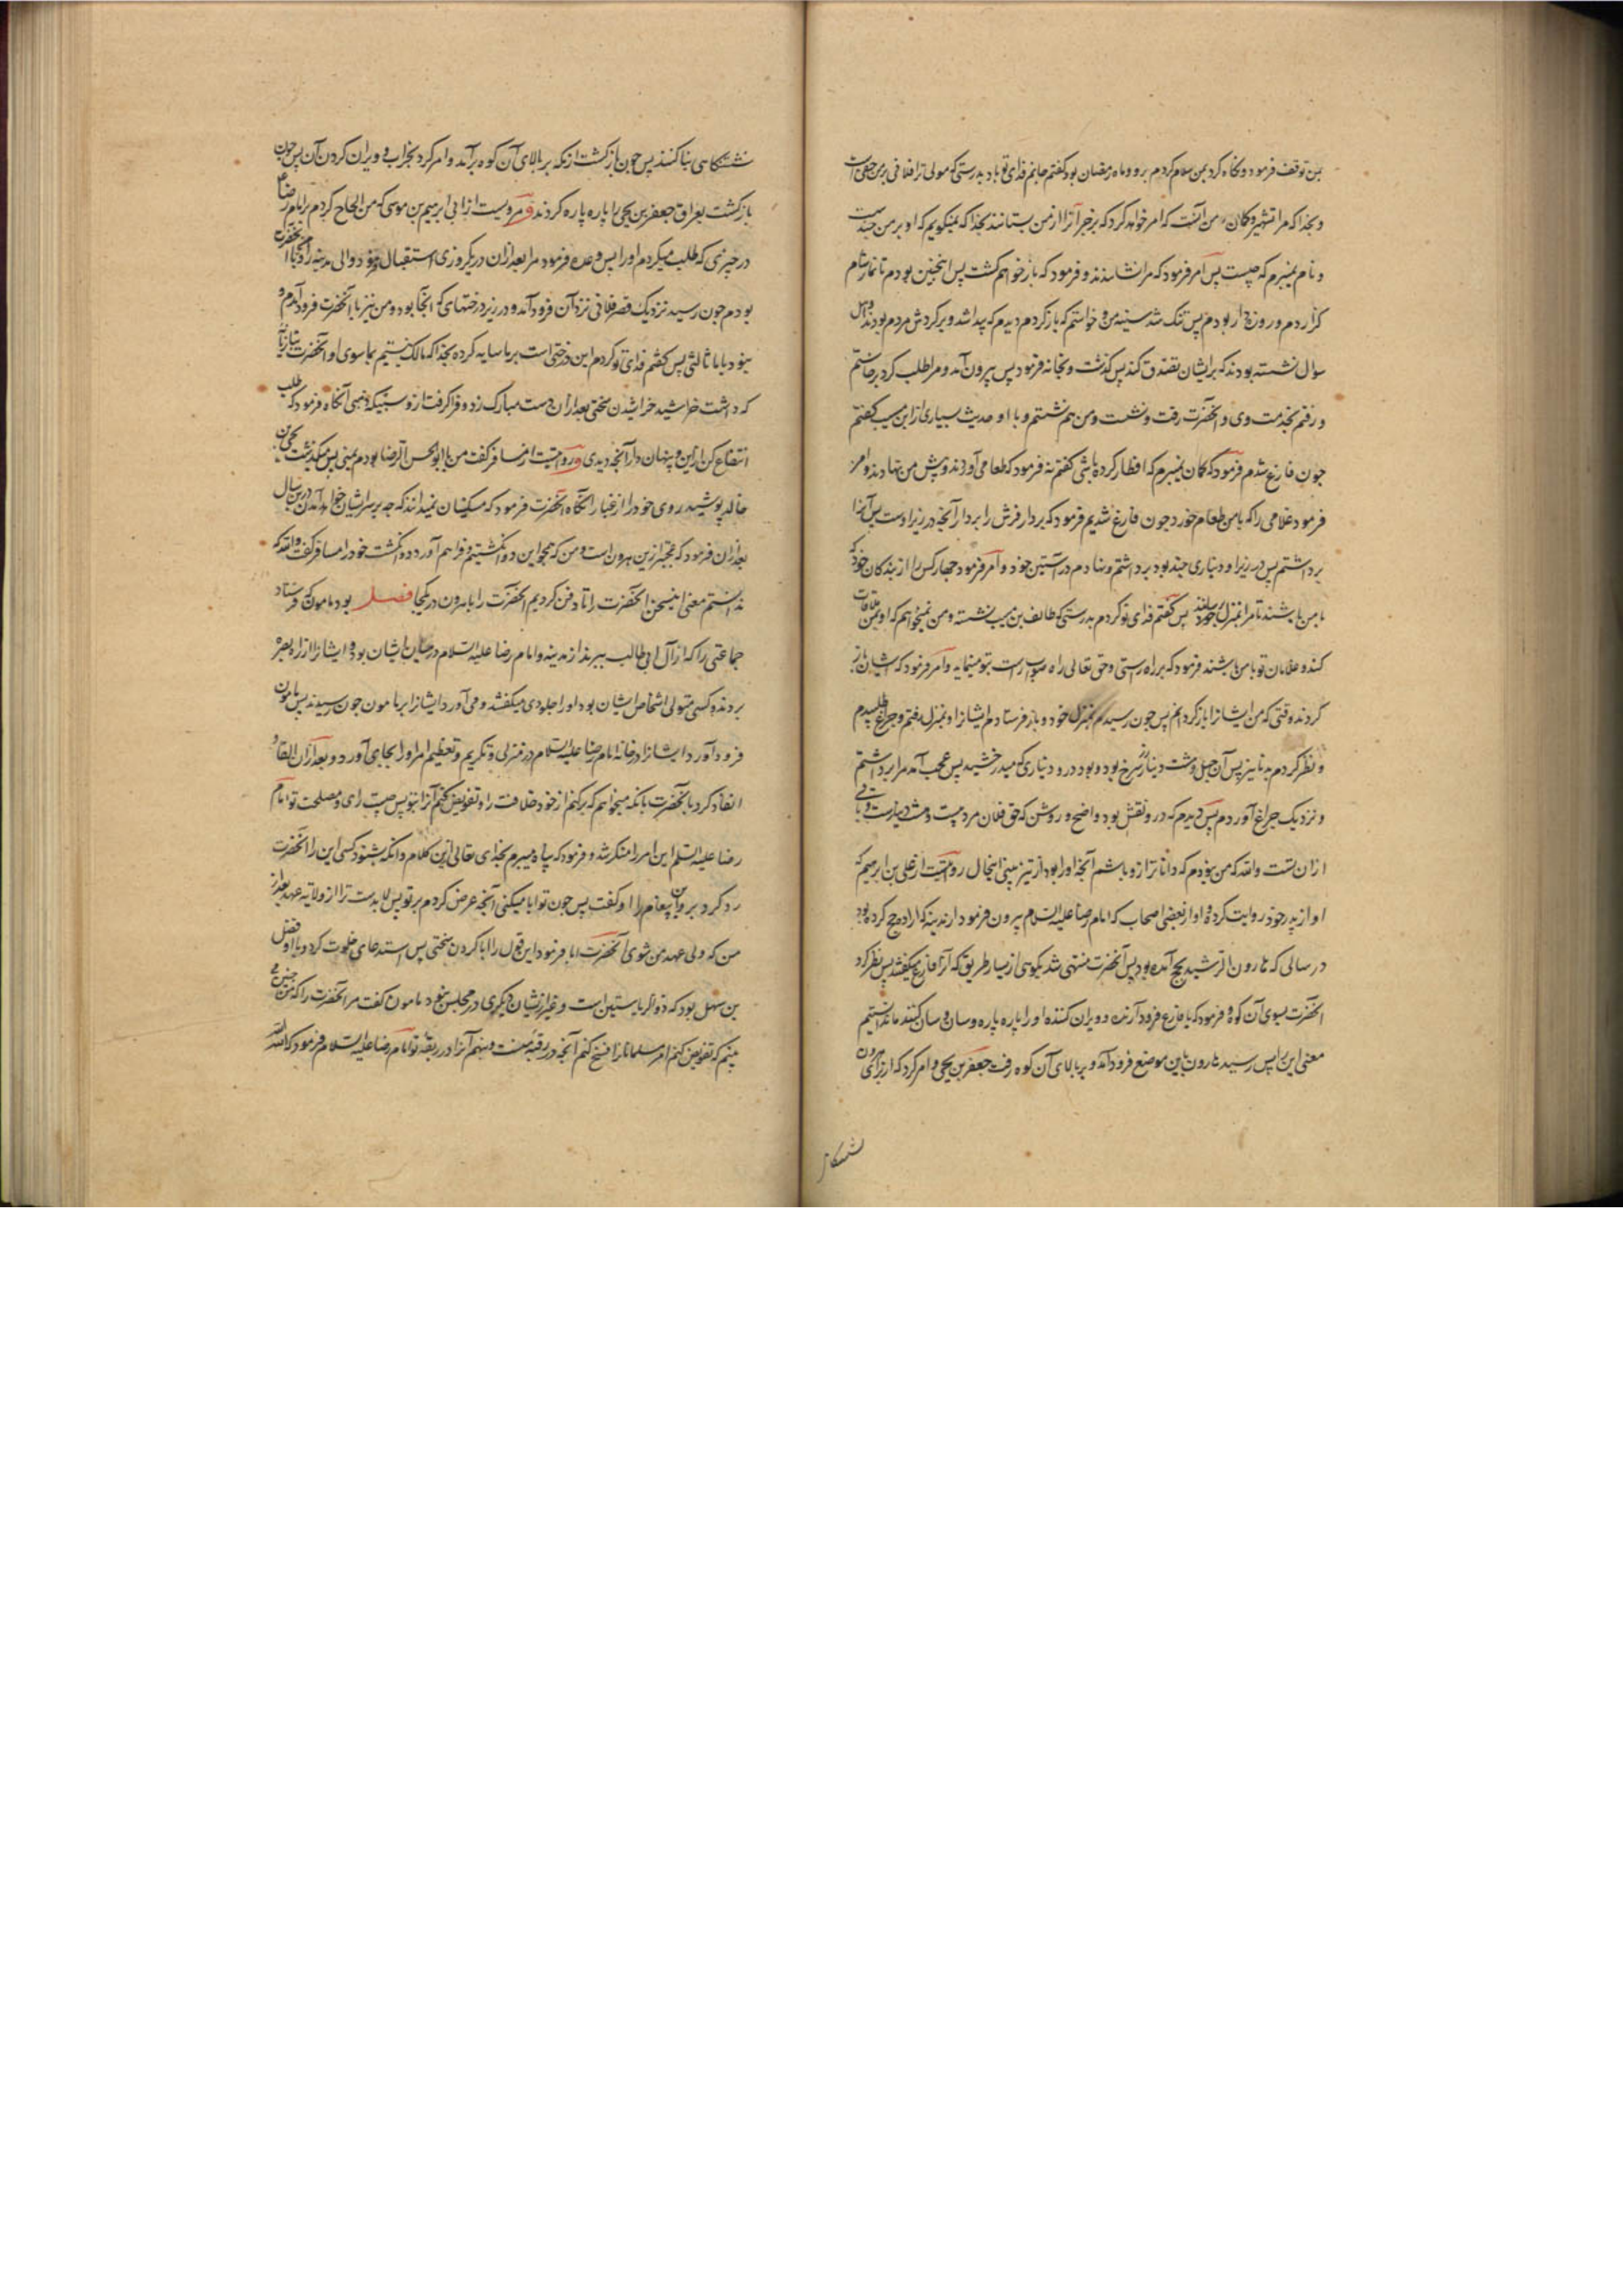 بمن توقف فرمود و نگاه کرد بمن سلام کردم برو و ماه رمضان بود گفتم جانم فدای تو باد بدرستی که مولی ترا فلانی بر من حقی است
و بخدا که مرا تشهیر و گمان من آنست که امر خواهد کرد که بزجر آنرا از من بستانند بخدا که نمیگویم که او بر من چند
و نام نمیبرم که چیست پس امر فرمود که مرا نشاندند و فرمود که باز خواهم گشت پس اینچنین بودم تا نماز شام
گزاردم و روزه دار بودم پس تنگ شد سینه من و خواستم که بازگردم دیدم که پیدا شد و بر گردش مردم بودند و اهل
سوال نشسته بودند که برایشان تصدق کند پس گذشت و بخانه فرمود پس بیرون آمد و مرا طلب کرد برخاستم
و رفتم بخدمت وی و آنحضرت رفت و نشست و من هم نشستم و با او حدیث بسیاری از ابن مسیب گفتم
چون فارغ شدم فرمود که گمان نمیبرم که افطار کرده باشی گفتم نه فرمود که طعامی آوردند و پیش من نهادند و امر
فرمود غلامی را که با من طعام خورد چون فارغ شدیم فرمود که بردار فرش را بردار آنچه در زیر اوست پس آنرا
برداشتم پس در زیر او دیناری چند بود برداشتم و نهادم در آستین خود و امر فرمود چهار کس را از بندگان خود که
با من باشند تا مرا بمنزل خود رسانند پس گفتم فدای تو گردم بدرستی که طائف بن مسیب نشسته و من نمیخواهم که او بمن ملاقات
کند و غلامان تو با من باشند فرمود که بر راه راستی و حق تعالی راه صواب راست بتو مینماید و امر فرمود که ایشان باز
گردند وقتی که من ایشانرا بازگردانم پس چون رسیدم بمنزل خود و باز فرستادم ایشانرا و بمنزل رفتم و چراغ طلبیدم
و نظر کردم بدنانیر پس آن چهل و هشت دینار سرخ بود و بود درو دیناری که میدرخشید پس عجب آمد مرا برداشتم
و نزدیک چراغ آوردم پس دیدم که درو نقش بود واضح و روشن که حق فلان مرد بیست و هشت دینارست و باقی
ازان تست والله که من نبودم که دانا تر ازو باشم آنچه او را بود از تیز بینی اینحال روایتست از علی بن ابرهیم که
او از پدر خود روایت کرده و او از بعضی اصحاب که امام رضا علیه السلام بیرون فرمود از مدینه که اراده حج کرده بود
در سالی که هارون الرشید بحج آمده بود پس آنحضرت منتهی شد بکوهی از یسار طریق که آنرا فارع میگفتند پس نظر کرد
آنحضرت بسوی آن کوه و فرمود که یا فارع فرود آرنده و ویران کننده او را پاره پاره و سان و سان کنند ما ندانستیم
معنی این را پس رسید هارون باین موضع فرود آمد و بر بالای آن کوه رفت جعفر بن یحیی و امر کرد که از برای هرون
نشتگاهی بنا کنند پس چون بازگشت از مکه بر بالای آن کوه برآمد و امر کرد بخراب و ویران کردن آن پس چون
بازگشت بعراق جعفر بن یحیی را پاره پاره کردند و مرویست از ابی ابرهیم بن موسی که من الحاح کردم بر امام رضا
در چیزی که طلب میکردم او را پس وعده فرمود مرا بعد ازان در یکروزی استقبال فرمود والی مدینه را و من با آنحضرت
بودم چون رسید نزدیک قصر فلانی نزد آن فرود آمد و در زیر درختهای که آنجا بود و من نیز با آنحضرت فرود آمدم و
نبود با ما ثالثی پس گفتم فدای تو گردم این درختی است بر ما سایه کرده بخدا که مالک نیستیم بما سوی او آنحضرت
که داشت خراشید خراشیدن سختی بعد ازان دست مبارک زد و فرا گرفت ازو سبیکه ذهبی آنگاه فرمود که طلب
انتفاع کن ازین و پنهان دار آنچه دیدی و روایتست از مسافر گفت من با ابو الحسن الرضا بودم بمنی پس میگذشت یحیی بن
خالد پوشید روی خود را از غبار آنگاه آنحضرت فرمود که مسکینان نمیدانند که چه بر سر ایشان خواهد آمدن درین سال
بعد ازان فرمود که عجبتر ازین هرون است و من که همچو این دو انگشتیم و فراهم آورد دو انگشت خود را مسافر گفت والله که
ندانستم معنی این سخن آنحضرت را تا دفن کردیم آنحضرت را با هرون در یکجا فصل بود مامون که فرستاد
جماعتی را که از آل ابی طالب ببرند از مدینه و امام رضا علیه السلام در میان ایشان بود و ایشانرا از راه بصره
بردند و کسی متولی اشخاص ایشان بود او را جلودی میگفتند و می آورد ایشانرا بر مامون چون رسیدند پس مامون
فرود آورد ایشانرا در خانه امام رضا علیه السلام در منزلی و تکریم و تعظیم امر او را بجای آورد و بعد ازان القا و
انفاذ کرد بآنحضرت بانکه میخواهم که برکنم از خود خلافت را و تفویض کنم آنرا بتو پس چیست رای و مصلحت تو امام
رضا علیه السلم این امر را منکر شد و فرمود که پناه میبرم بخدای تعالی ازین کلام و آنکه شنود کسی این را آنحضرت
رد کرد برو این پیغام را او گفت پس چون تو ابا میکنی آنچه عرض کردم بر تو پس لا بدست ترا از ولایة عهد بعد از
من که ولی عهد من شوی آنحضرت ابا فرمود این قول را ابا کردن سختی پس استدعای خلوت کرد و با او فضل
بن سهل بود که ذو الریاستین است و غیر ازیشان دیگری در مجلس نبود مامون گفت مر آنحضرت را که من چنین می
بینم که تفویض کنم امر مسلمانان را و فسخ کنم آنچه در رقبه منست و بنهم آنرا در رقبه تو امام رضا علیه السلام فرمود که الله الله